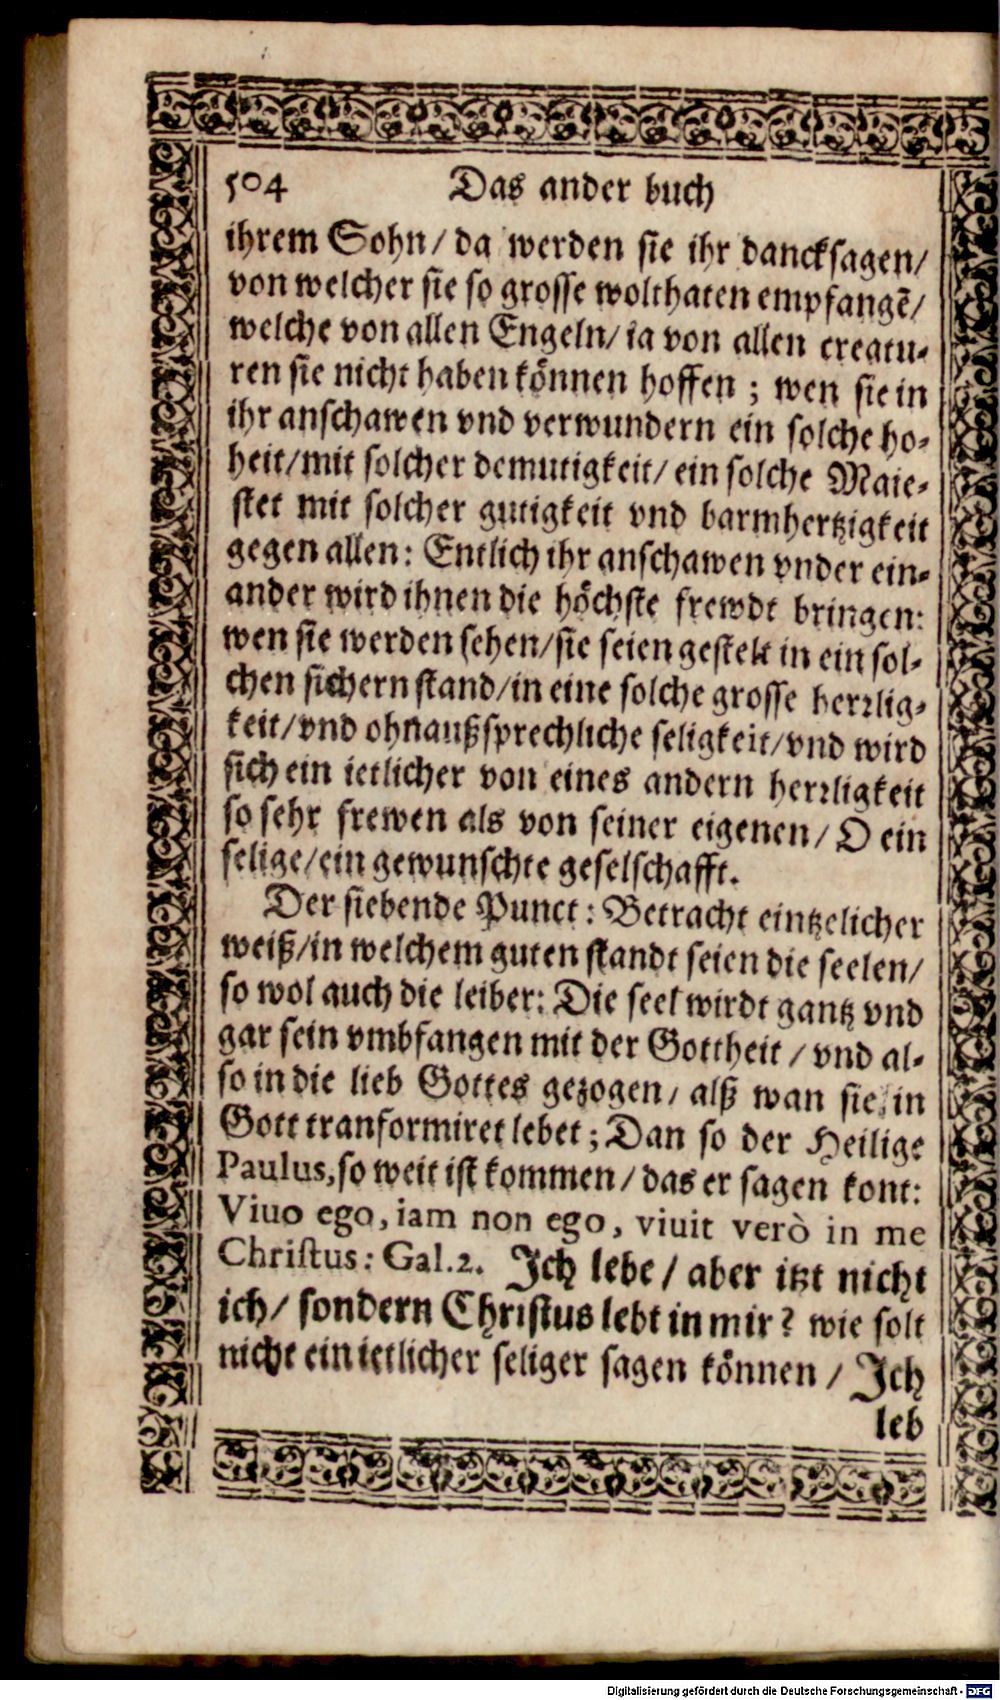 504 Das ander buch
ihrem Sohn/ da werden sie ihr dancksagen/
von welcher sie so grosse wolthaten empfangẽ/
welche von allen Engeln/ ia von allen creatu-
ren sie nicht haben können hoffen ; wen sie in
ihr anschawen vnd verwundern ein solche ho-
heit/mit solcher demutigkeit/ ein solche Maie-
stet mit solcher gutigkeit vnd barmhertzigkeit
gegen allen: Entlich ihr anschawen vnder ein-
ander wird ihnen die höchste frewdt bringen:
wen sie werden sehen/sie seien gestelt in ein sol-
chen sichern stand/in eine solche grosse herrlig-
keit/vnd ohnaußsprechliche seligkeit/vnd wird
sich ein ietlicher von eines andern herrligkeit
so sehr frewen als von seiner eigenen/ O ein
selige/ein gewunschte geselschafft.
Der siebende Punct: Betracht eintzelicher
weiß/in welchem guten standt seien die seelen/
so wol auch die leiber: Die seel wirdt gantz vnd
gar sein vmbfangen mit der Gottheit / vnd al-
so in die lieb Gottes gezogen/ alß wan sie in
Gott tranformiret lebet; Dan so der Heilige
Paulus, so weit ist kommen/ das er sagen kont:
Viuo ego, iam non ego, viuit verò in me
Christus: Gal.2. Jch lebe/ aber itzt nicht
ich/ sondern Christus lebt in mir? wie solt
nicht ein ietlicher seliger sagen können / Jch
leb
Digitalisierung gefördert durch die Deutsche Forschungsgemeinschaft - DFG